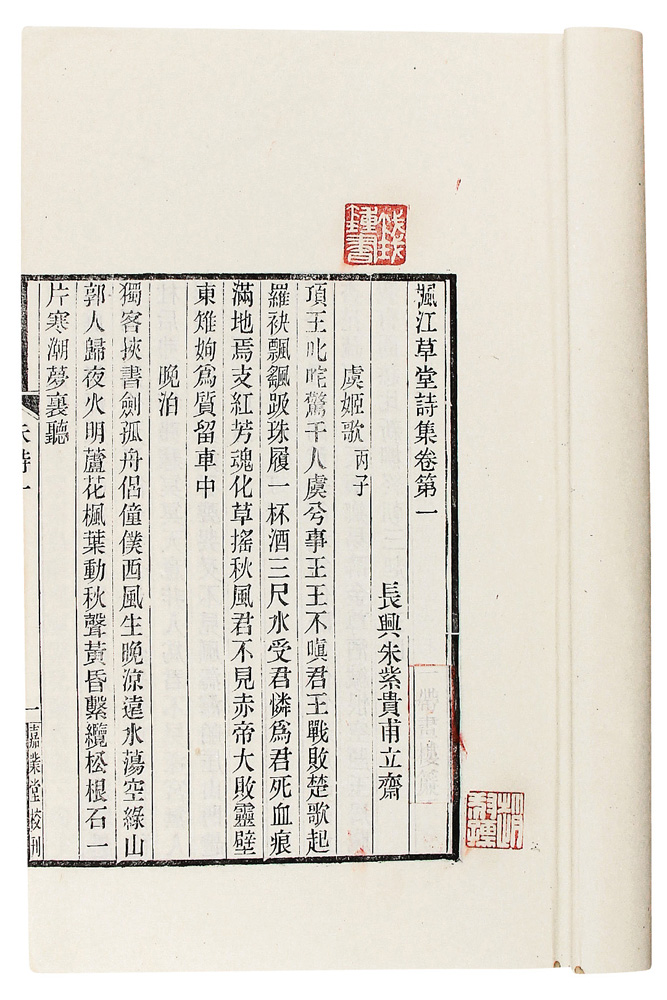 楓江草堂詩集卷第一
長興朱紫貴甫立齋
虞姬歌 丙子
項王叱咤驚千人虞兮事王王不嗔君王戰敗楚歌起
羅袂飄颻趿珠履一杯酒三尺水受君憐爲君死血痕
滿地焉支紅芳魂化草搖秋風君不見赤帝大敗靈壁
東雉姁爲質留車中
晚泊
獨客挾書劍孤舟侶僮僕西風生晚涼遠水蕩空綠山
郭人歸夜火明蘆花楓葉動秋聲黃昏繫纜松根石一
片寒潮夢裏聽
一
嘉業堂校刊
錢鍾書